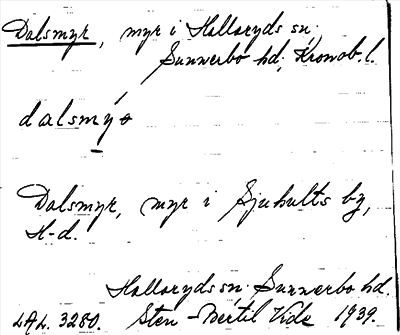 Dalsmyr, myr i Hallaryds sn.
Sunnerbo hd, Kronob. l.
dalsmýɐ
Dalsmyr, myr i Sjuhults by,
H-d.
Hallaryds sn. Sunnerbo hd.
LAL. 3280. Sten-Bertil Vide 1939.